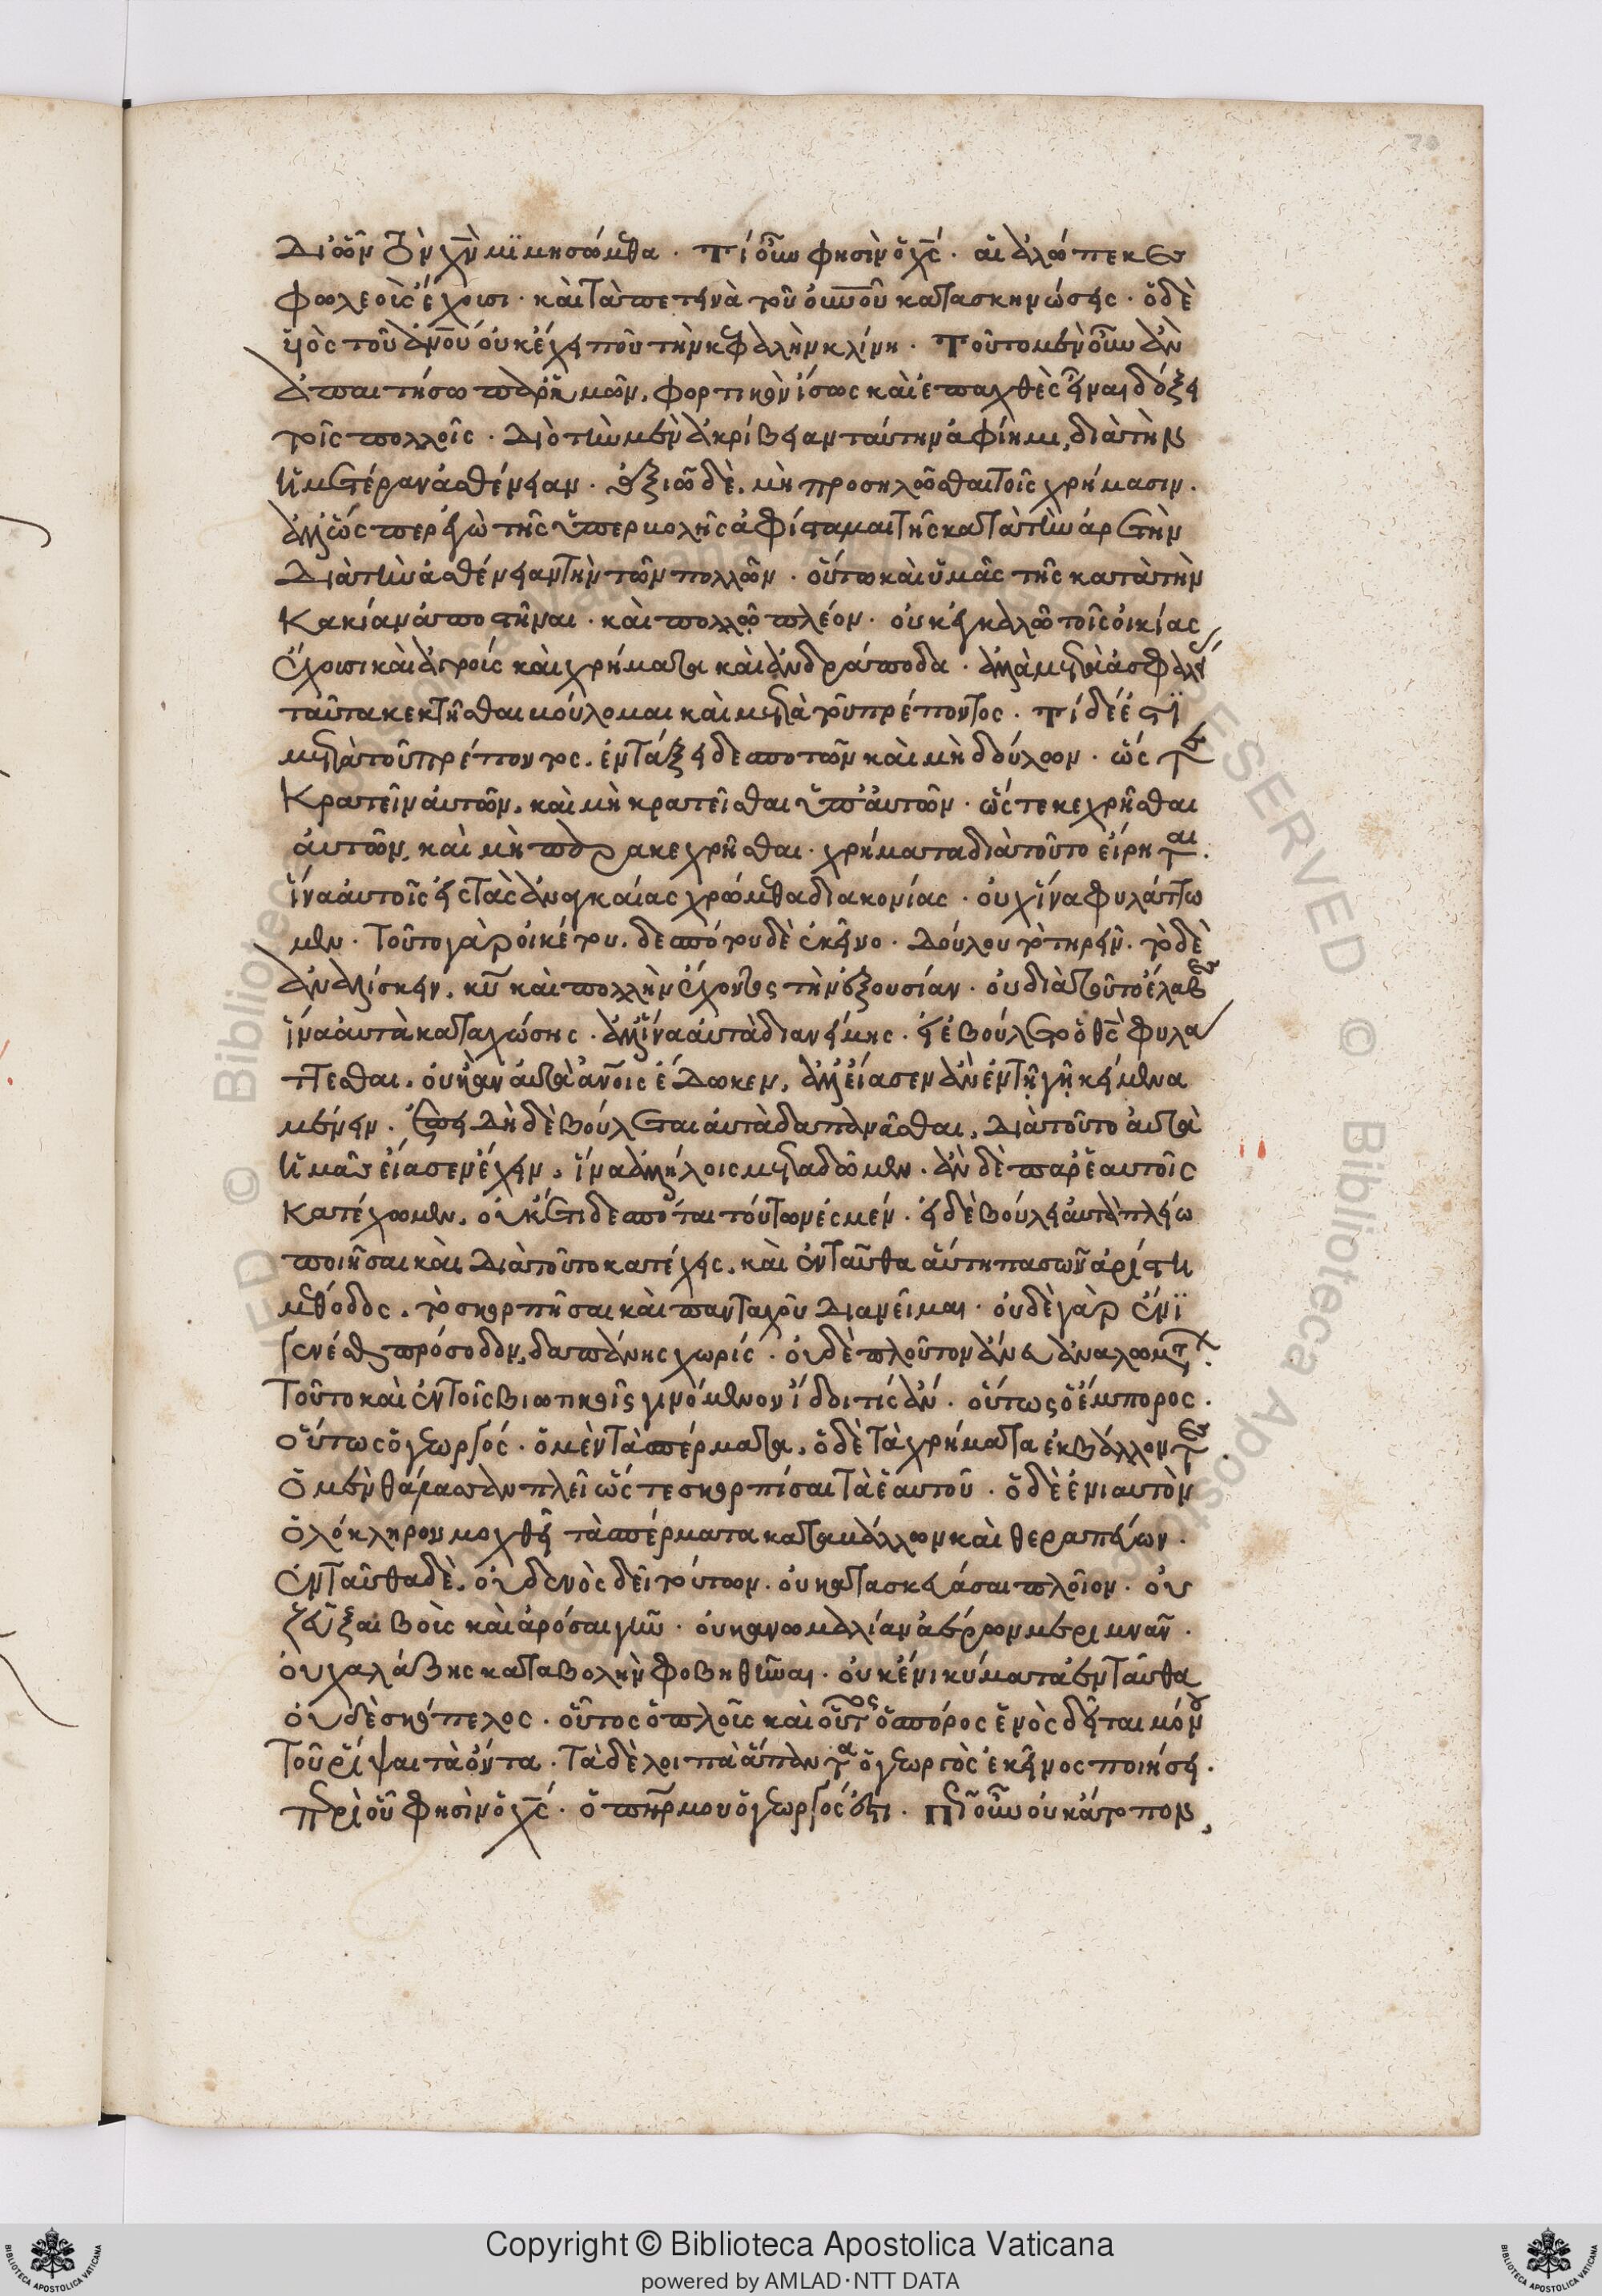 Δι ὧν τὸν χ̅ν̅ μιμησώμεθα · Τί οὖν φησὶν ὁ χ̅ς̅ · αἱ ἀλώπεκες
φωλεοὺς ἔχουσι · καὶ τὰ πετεινὰ τοῦ ο̅υ̅ν̅ο̅υ̅ κατασκηνώσεις · ὁ δὲ
υἱὸς τοῦ α̅ν̅ο̅υ̅ οὐκ ἔχει ποῦ τὴν κεφαλὴν κλίνη · Τοῦτο μὲν οὖν ἂν
ἀπαιτήσω παρ ἡμῶν, φορτικὸν ἴσως καὶ ἐπαχθὲς εἶναι δόξει
τοῖς πολλοῖς · Διὸ τὴν μὲν ἀκρίβειαν ταύτην ἀφίημι, διὰ τὴν
ἡμετέραν ἀσθένειαν · ἀξιῶ δὲ, μὴ προσηλῶσθαι τοῖς χρήμασιν ·
ἀλλ ὥσπερ ἐγὼ τῆς ὑπερβολῆς ἀφίσταμαι τῆς κατὰ τὴν ἀρετὴν
Διὰ τὴν ἀσθένειαν τὴν τῶν πολλῶν · οὕτω καὶ ὑμᾶς τῆς κατὰ τὴν
Κακίαν ἀποστῆναι · καὶ πολλῷ πλέον · οὐκ ἐγκαλῶ τοῖς οἰκίας
ἔχουσι καὶ ἀγροὺς καὶ χρήματα καὶ ἀνδράποδα · ἀλλὰ μετὰ ἀσφαλεί
ταῦτα κεκτῆσθαι βούλομαι καὶ μετὰ τοῦ πρέποντος · Τί δέ ἐστι
μετὰ τοῦ πρέποντος, ἐν τάξει δεσποτῶν καὶ μὴ δούλων · ὥστε
Κρατεῖν αὐτῶν, καὶ μὴ κρατεῖσθαι ὑπ αὐτῶν · ὥστε κεχρῆσθαι
αὐτῶν, καὶ μὴ παρακεχρῆσθαι · χρήματα διὰ τοῦτο εἴρηται ·
ἵνα αὐτοῖς εἰς τὰς ἀναγκαίας χρώμεθα διακονίας · οὐχ ἵνα φυλάττω
μεν · Τοῦτο γὰρ οἰκέτου, δεσπότου δὲ ἐκεῖνο · Δούλου τὸ τηρεῖν · τὸ δὲ
ἀναλίσκειν, κυ̅ καὶ πολλὴν ἔχοντος τὴν ἐξουσίαν · οὐ διὰ τοῦτο ἔλαβες
ἵνα αὐτὰ καταχώσης · ἀλλ ἵνα αὐτὰ διανείμης · εἰ ἐβούλετο ὁ θ̅ς̅ φυλά
ττεσθαι, οὐκ ἂν αὐτὰ α̅ν̅ο̅ι̅ς̅ ἔδωκεν, ἀλλ εἴασεν ἂν ἐν τῇ γῇ κείμενα
μένειν · Ἐπειδὴ δὲ βούλεται αὐτὰ δαπανᾶσθαι, Διὰ τοῦτο αὐτὰ
ἡμᾶς εἴασεν ἔχειν, ἵνα ἀλλήλοις μεταδῶμεν · ἂν δὲ παρ ἑαυτοῖς
Κατέχωμεν, οὐκέτι δεσπόται τούτων ἐσμέν · εἰ δὲ βούλει αὐτὰ πλείω
ποιῆσαι καὶ Διὰ τοῦτο κατέχεις, καὶ ἐνταῦθα αὕτη πασῶν ἀρίστη
μέθοδος, τὸ σκορπῆσαι καὶ πανταχοῦ Διανεῖμαι · οὐδὲ γὰρ ἔνι
γενέσθαι πρόσοδον, δαπάνης χωρίς · οὐδὲ πλοῦτον ἄνευ ἀναλωμάτ ·
Τοῦτο καὶ ἐν τοῖς βιωτικοῖς γινόμενον ἴδοι τίς ἄν · οὕτως ὁ ἔμπορος ·
οὕτως ὁ γεωργός · ὁ μὲν τὰ σπέρματα, ὁ δὲ τὰ χρήματα ἐκβάλλοντες
Ὁ μὲν θάλασσαν πλεῖ ὥστε σκορπίσαι τὰ ἑαυτοῦ · ὁ δὲ ἐνιαυτὸν
Ὁλόκληρον μοχθεῖ τὰ σπέρματα καταβάλλων καὶ θεραπεύων ·
Ἐνταῦθα δὲ, οὐδενὸς δεῖ τούτων · οὐ κατασκευάσαι πλοῖον · οὐ
ζεῦξαι βοῦς καὶ ἀρόσαι γῆν · οὐκ ἀνωμαλίαν ἀέρων μεριμνᾶν ·
οὐ χαλάζης καταβολὴν φοβηθῆναι · οὐκ ἔνι κύματα ἐνταῦθα
οὐδὲ σκόπελος · οὗτος ὁ πλοῦς καὶ οὗτος ὁ σπόρος ἑνὸς δεῖται μόνου
Τοῦ ῥίψαι τὰ ὄντα · Τὰ δὲ λοιπὰ ἅπαντα ὁ γεωργὸς ἐκεῖνος ποιήσει ·
περὶ οὗ φησὶν ὁ χ̅ς̅ · ὁ π̅η̅ρ̅ μου ὁ γεωργός ἐστι · πῶς οὖν οὐκ ἄτοπον,